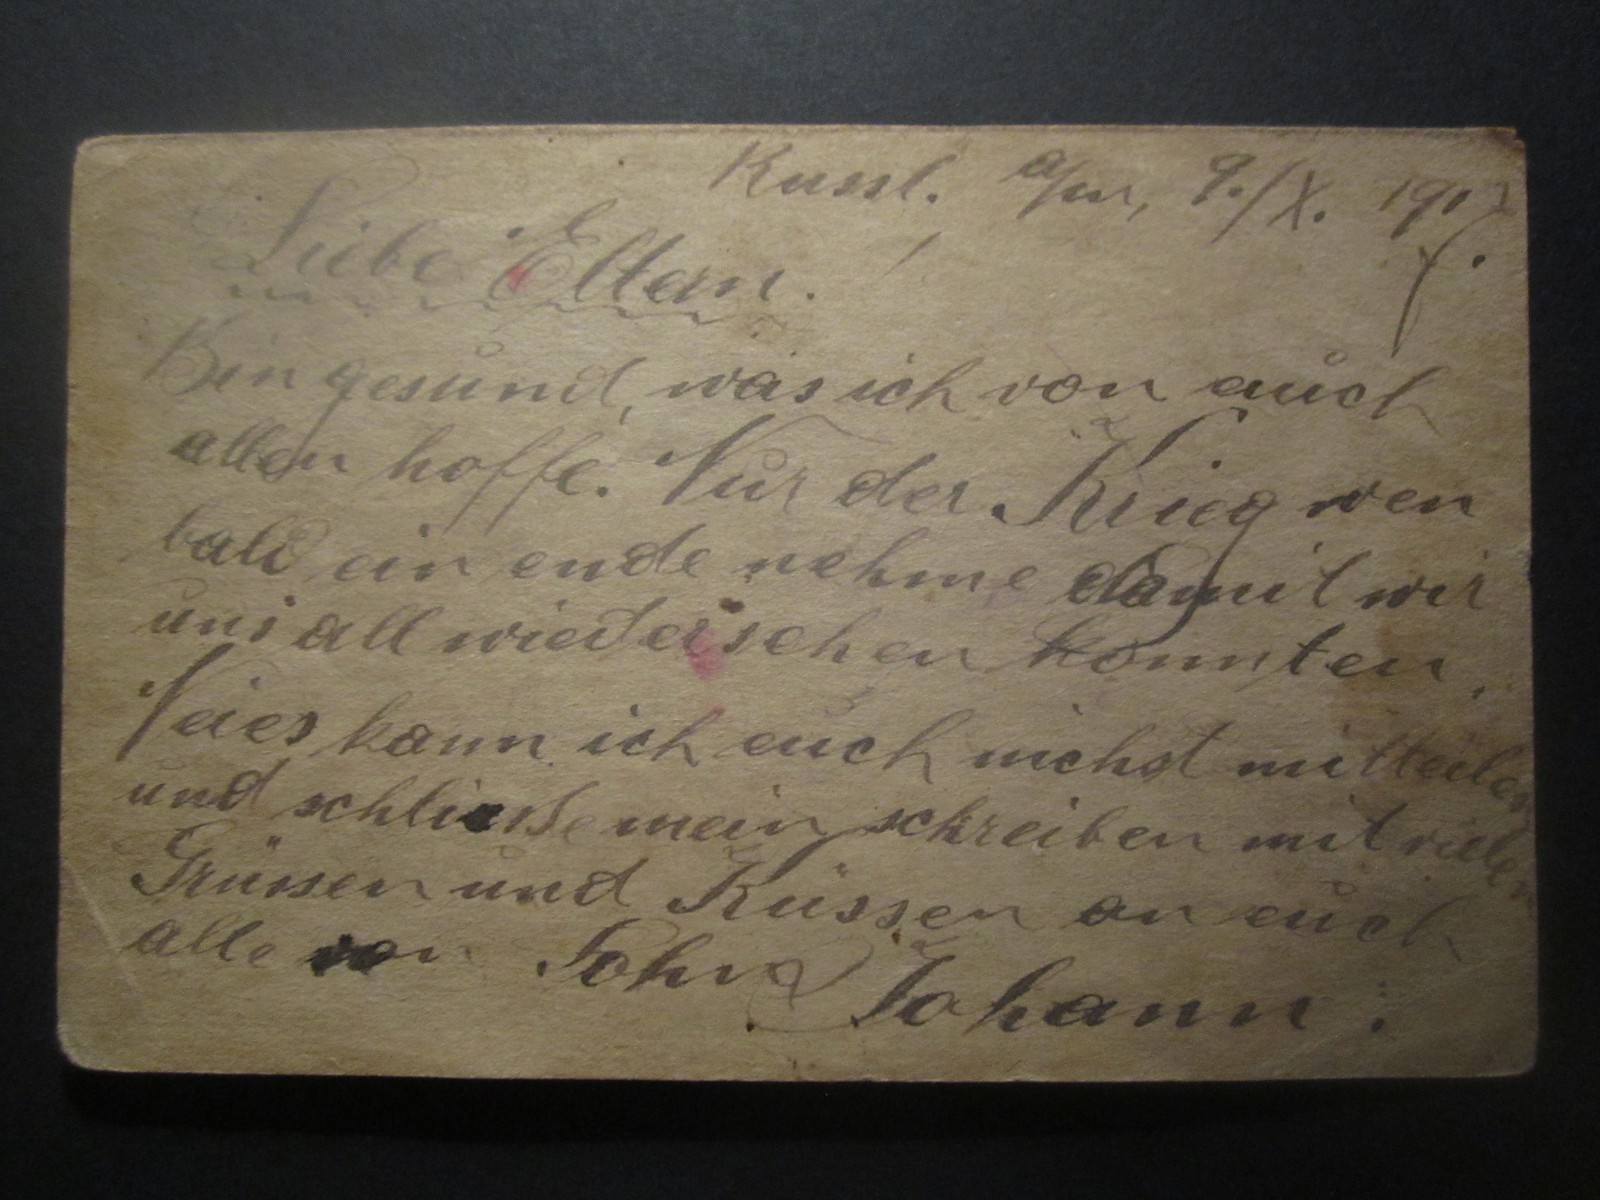 Russl. 9./X. 191
Liebe Eltern.
Bin gesund, was ich von euch
allen hoffe. Nur der Krieg wen
bald ein ende nehme damit wir
uns all wiedersehen konnten.
Neies kann ich euch nichst mitteilen
und schließe mein schreiben mit vielen
Grüssen und Küssen an euch
alle von Sohn Johann.